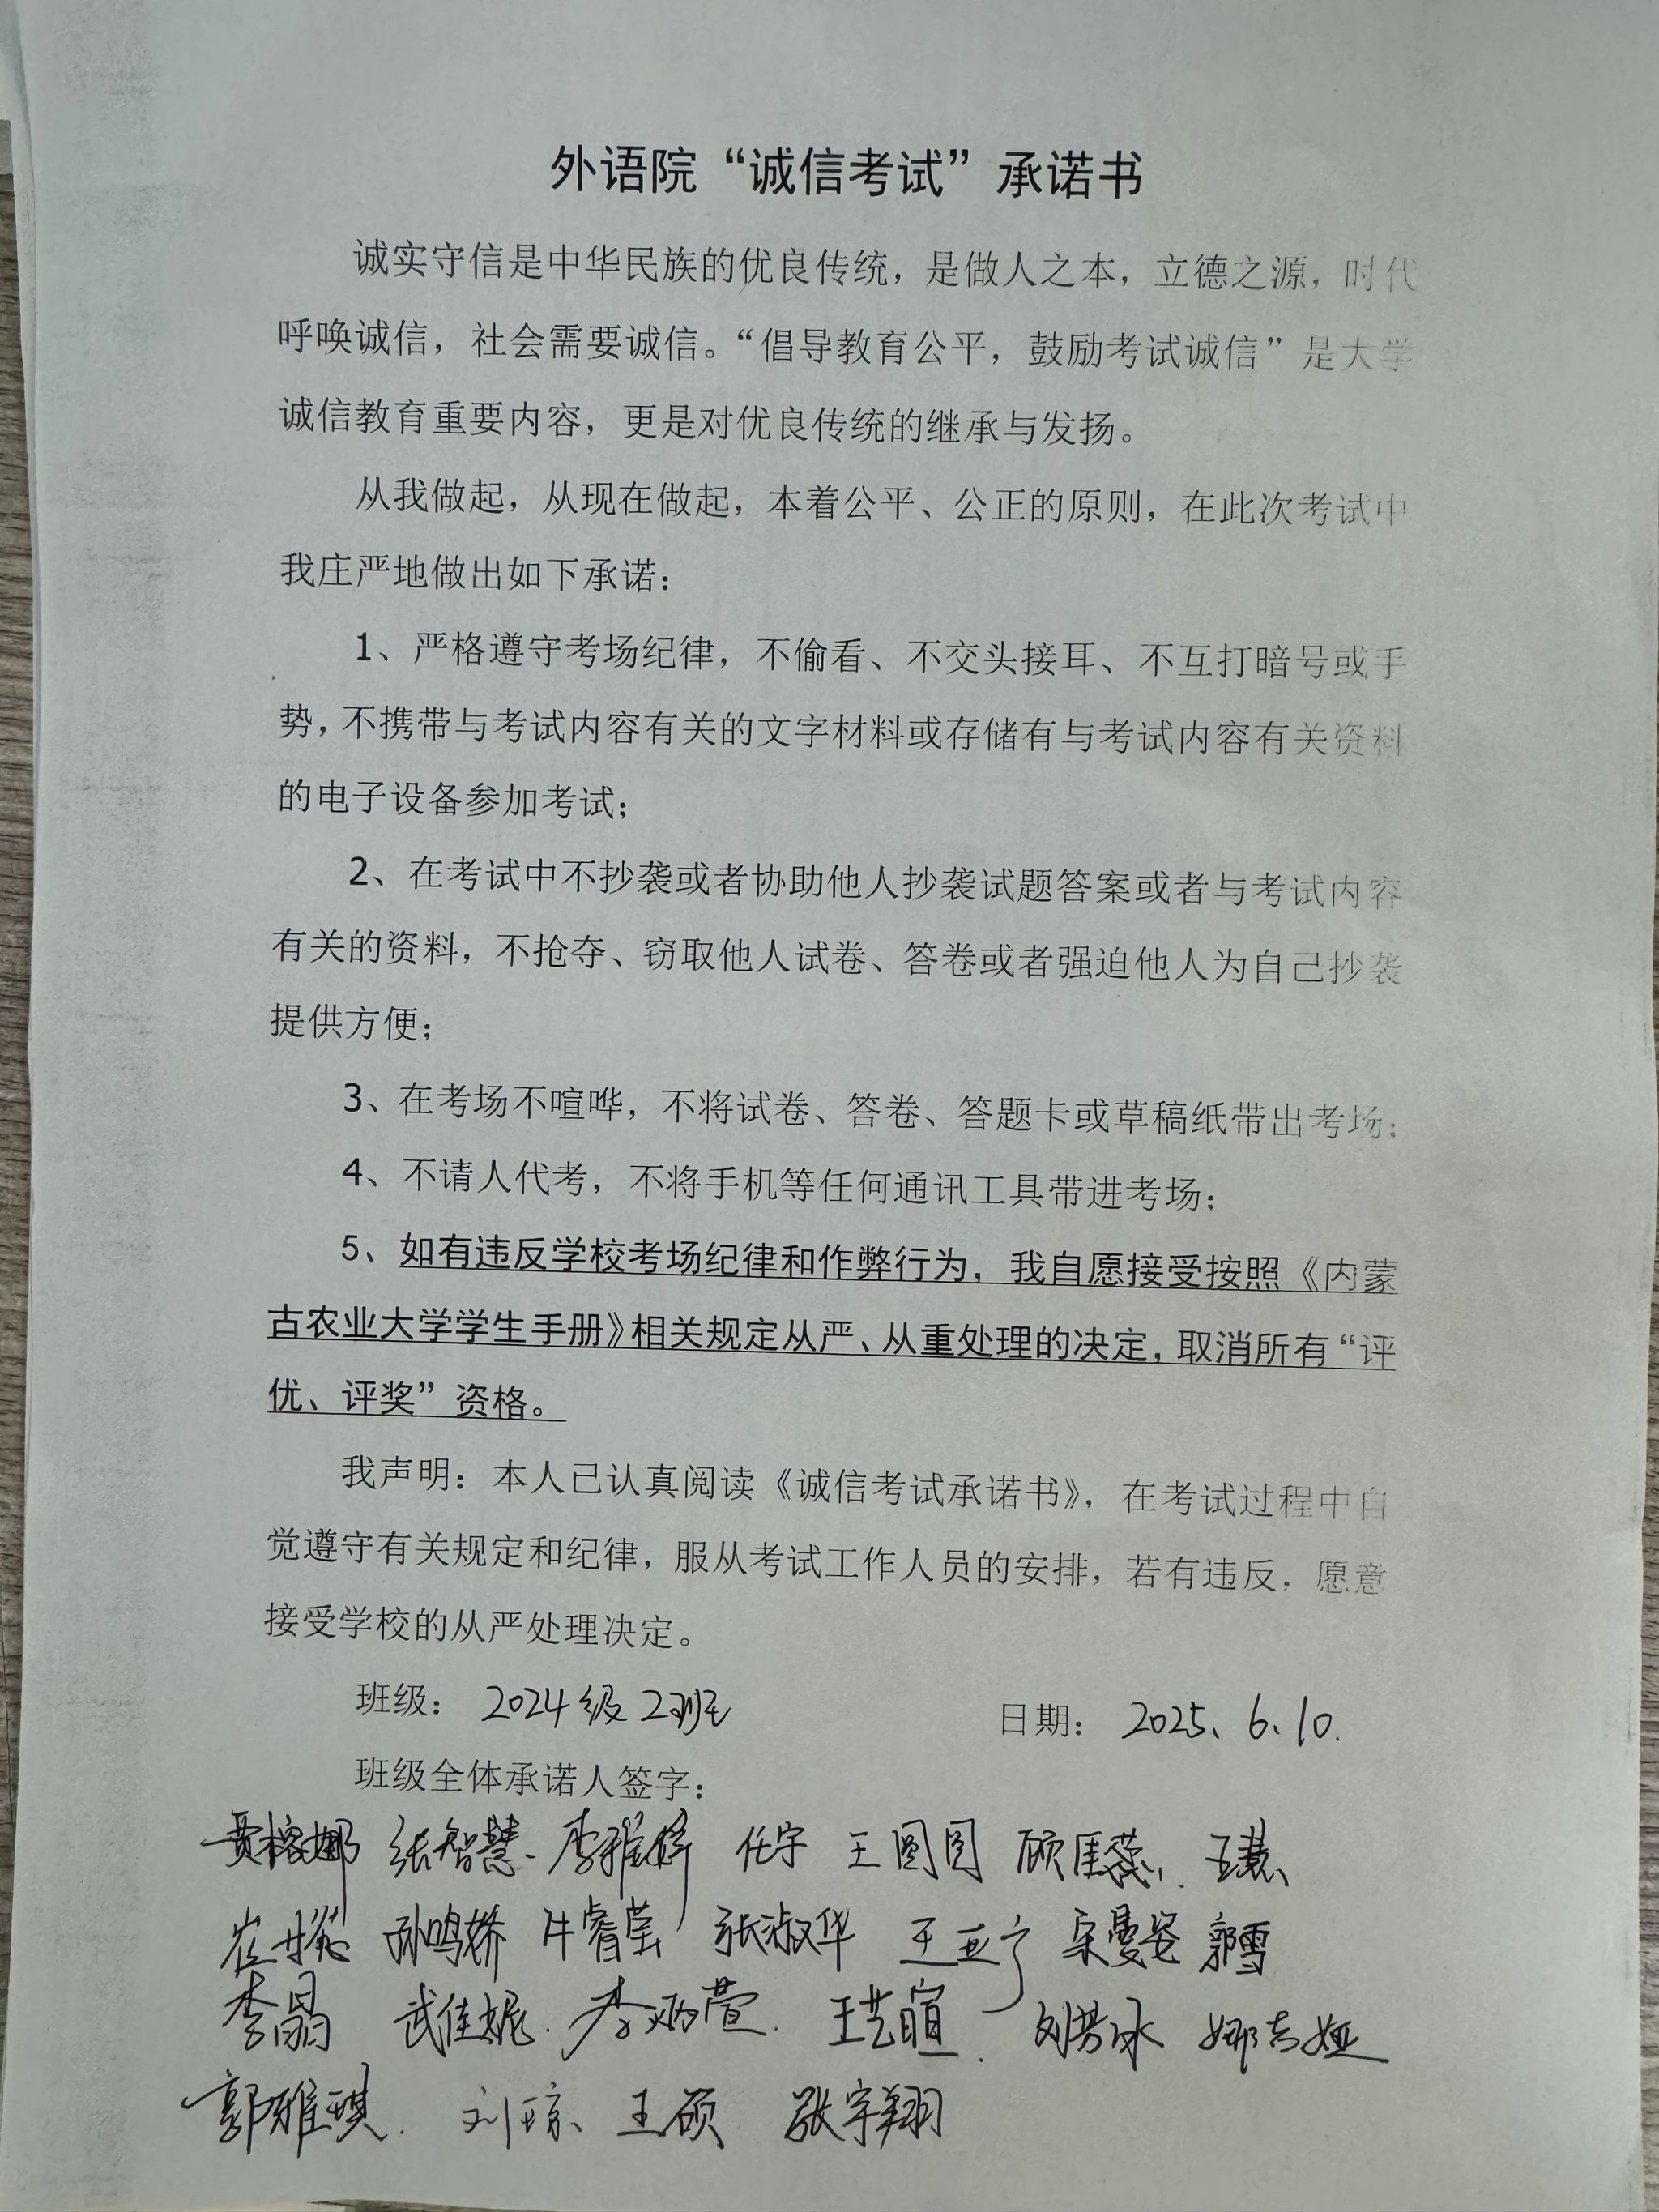 外语院“诚信考试”承诺书
诚实守信是中华民族的优良传统，是做人之本，立德之源，时代
呼唤诚信，社会需要诚信。“倡导教育公平，鼓励考试诚信”是大学
诚信教育重要内容，更是对优良传统的继承与发扬。
从我做起，从现在做起，本着公平、公正的原则，在此次考试中
我庄严地做出如下承诺：
1、严格遵守考场纪律，不偷看、不交头接耳、不互打暗号或手
势，不携带与考试内容有关的文字材料或存储有与考试内容有关资料
的电子设备参加考试；
2、在考试中不抄袭或者协助他人抄袭试题答案或者与考试内容
有关的资料，不抢夺、窃取他人试卷、答卷或者强迫他人为自己抄袭
提供方便；
3、在考场不喧哗，不将试卷、答卷、答题卡或草稿纸带出考场；
4、不请人代考，不将手机等任何通讯工具带进考场；
5、如有违反学校考场纪律和作弊行为，我自愿接受按照《内蒙
古农业大学学生手册》相关规定从严、从重处理的决定，取消所有“评
优、评奖”资格。
我声明：本人已认真阅读《诚信考试承诺书》，在考试过程中自
觉遵守有关规定和纪律，服从考试工作人员的安排，若有违反，愿意
接受学校的从严处理决定。
班级：2024级2班 日期：2025、6、10.
班级全体承诺人签字：
张智慧. 任宇 王圆圆 王慧、
孙鸣娇 牛睿莹 张淑华 王亚宁 宋曼姿 郭雪
李晶 武佳妮. 李炳萱. 王艺暄. 刘芳冰 娜吉娅
郭雅琪. 刘琼、王硕 张宇翔